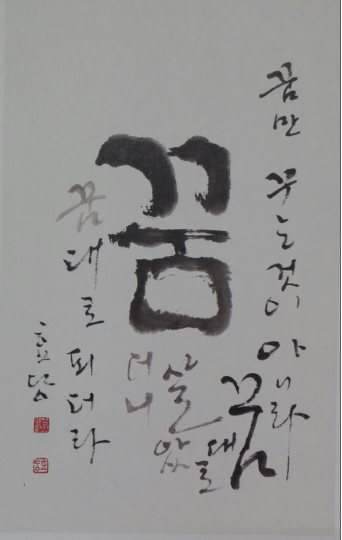 꿈
꿈만 꾸는것이 아니라
꿈대로
살았
더니
꿈대로 되더라
효당